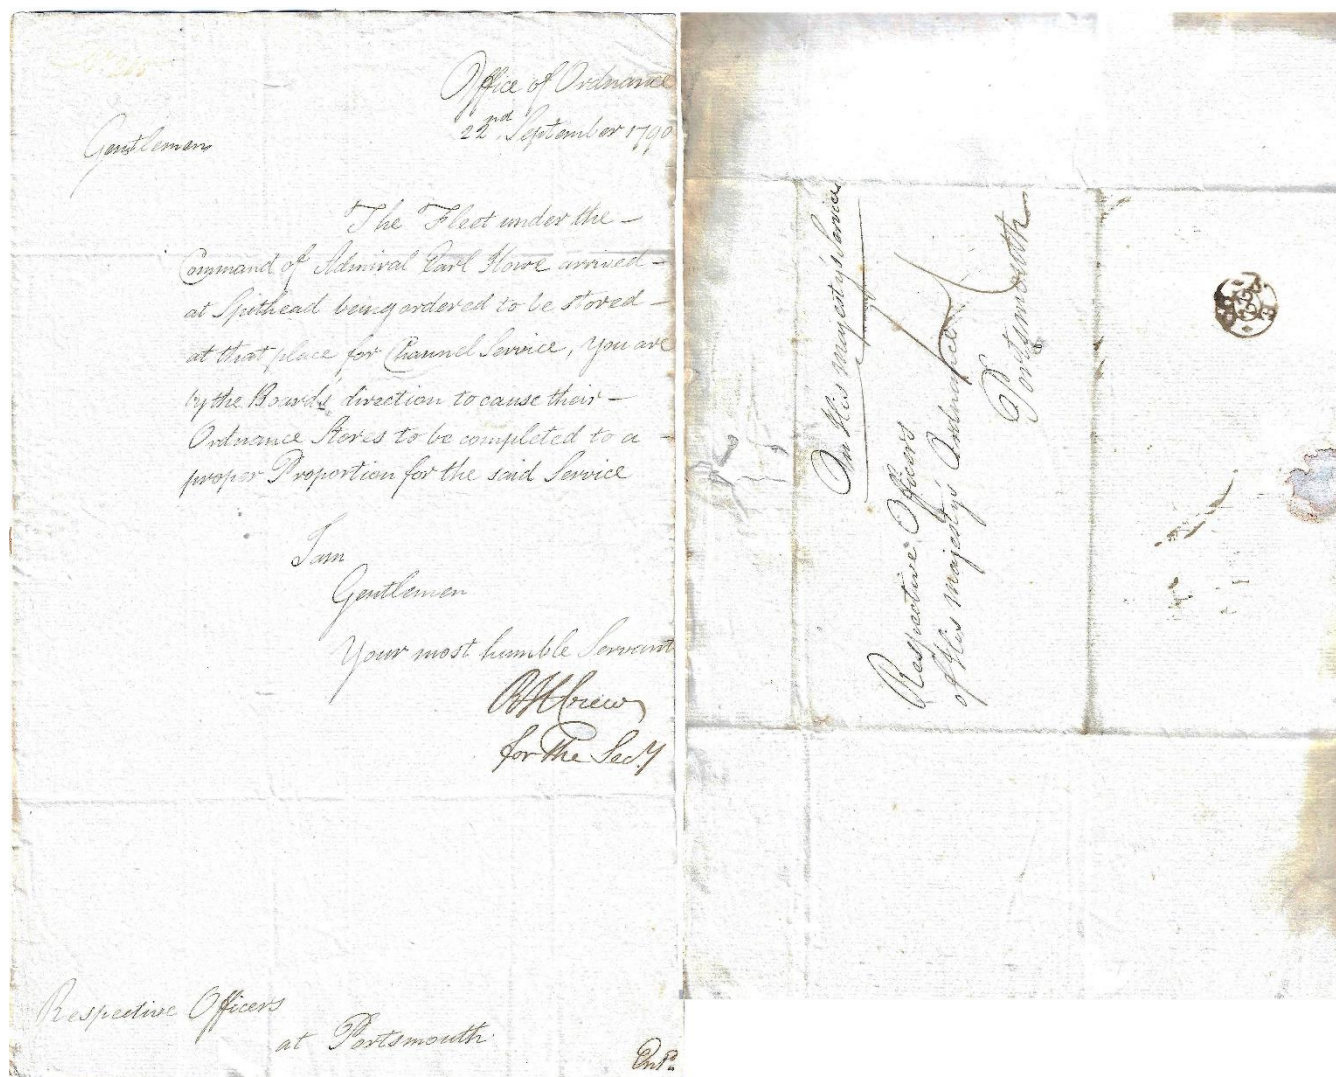 Office of Ordnance
22nd September 1790
Gentlemen
The Fleet under the -
Command of Admiral Earl Howe arrived -
at Spithead being ordered to be stored -
at that place for Channel Service, You are
by the Board's direction to cause their -
Ordnance Stores to be completed to a -
proper Proportion for the said Service
I am
Gentlemen
Your most humble Servant
RH Crew
for the Secy
Respective Officers
at Portsmouth
Entd
On His Majesty's Service
Respective Officers
of His Majesty's Ordnance
Portsmouth